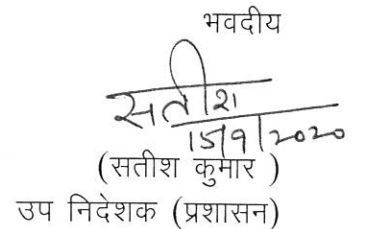 भवदीय
सतीश
15/9/2020
(सतीश कुमार )
उप निदेशक (प्रशासन)